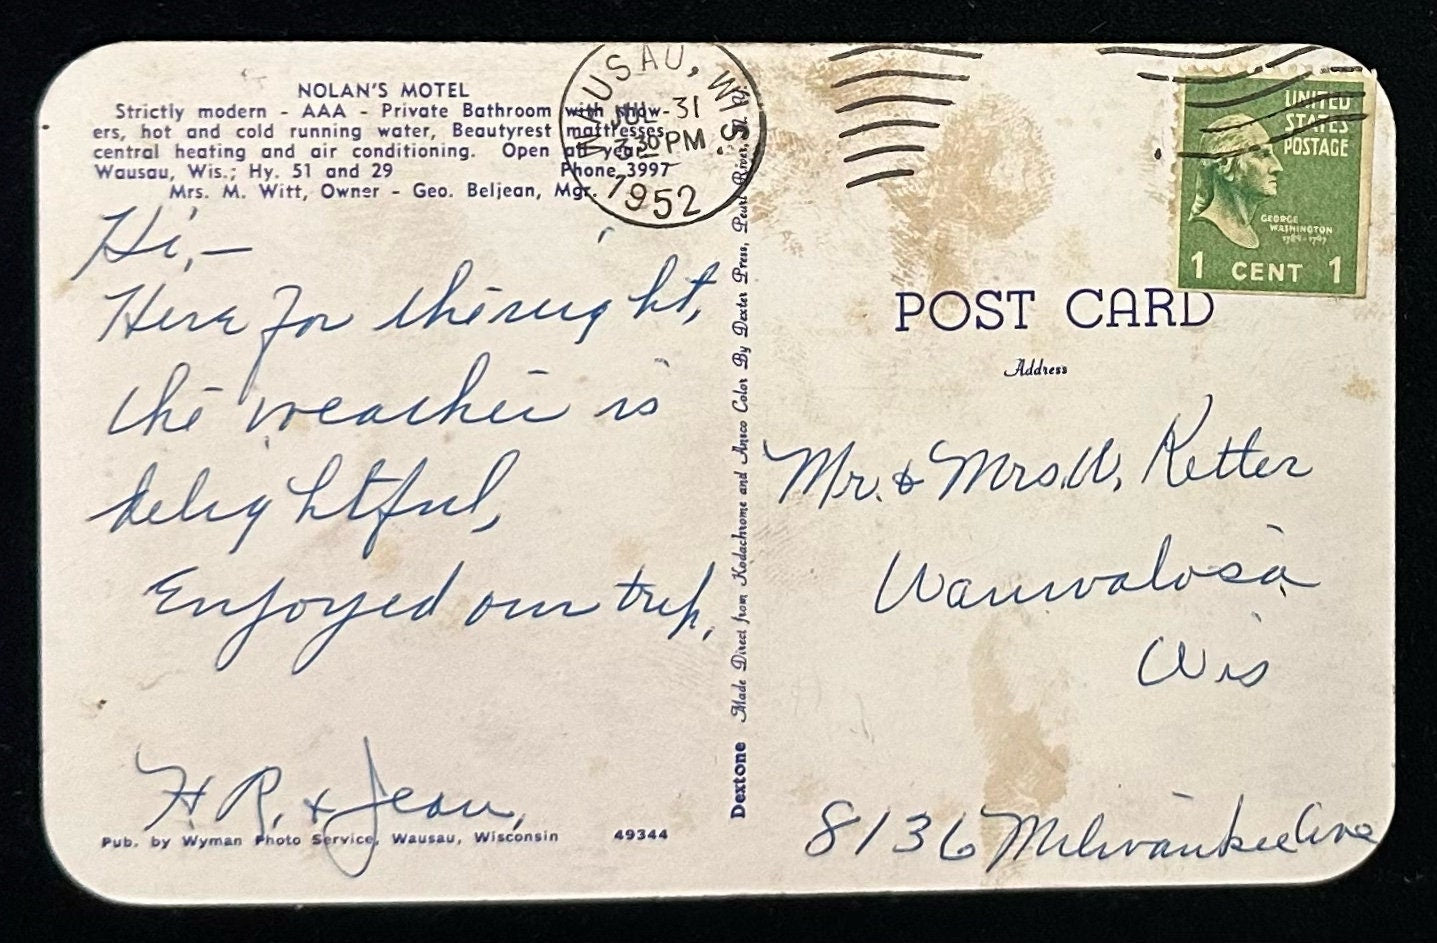 NOLAN'S MOTEL
Strictly modern - AAA - Private Bathroom with show-
ers, hot and cold running water, Beautyrest mattresses,
central heating and air conditioning. Open all year.
Wausau, Wis.; Hy. 51 and 29 Phone 3997
Mrs. M. Witt, Owner - Geo. Beljean, Mgr.
WAUSAU, WIS.
JUL-31
3 30 PM
1952
UNITED
STATES
POSTAGE
GEORGE
WASHINGTON
1789-1797
1 CENT 1
Hi,—
Here for the night,
the weather is
delightful,
Enjoyed our trip,
H R. & Jean,
Pub. by Wyman Photo Service, Wausau, Wisconsin 49344
Dextone Made Direct from Kodachrome and Ansco Color By Dexter Press, Pearl River, N. Y.
POST CARD
Address
Mr. & Mrs. W. Retter
Wauwatosa
Wis
8136 Milwaukee Ave